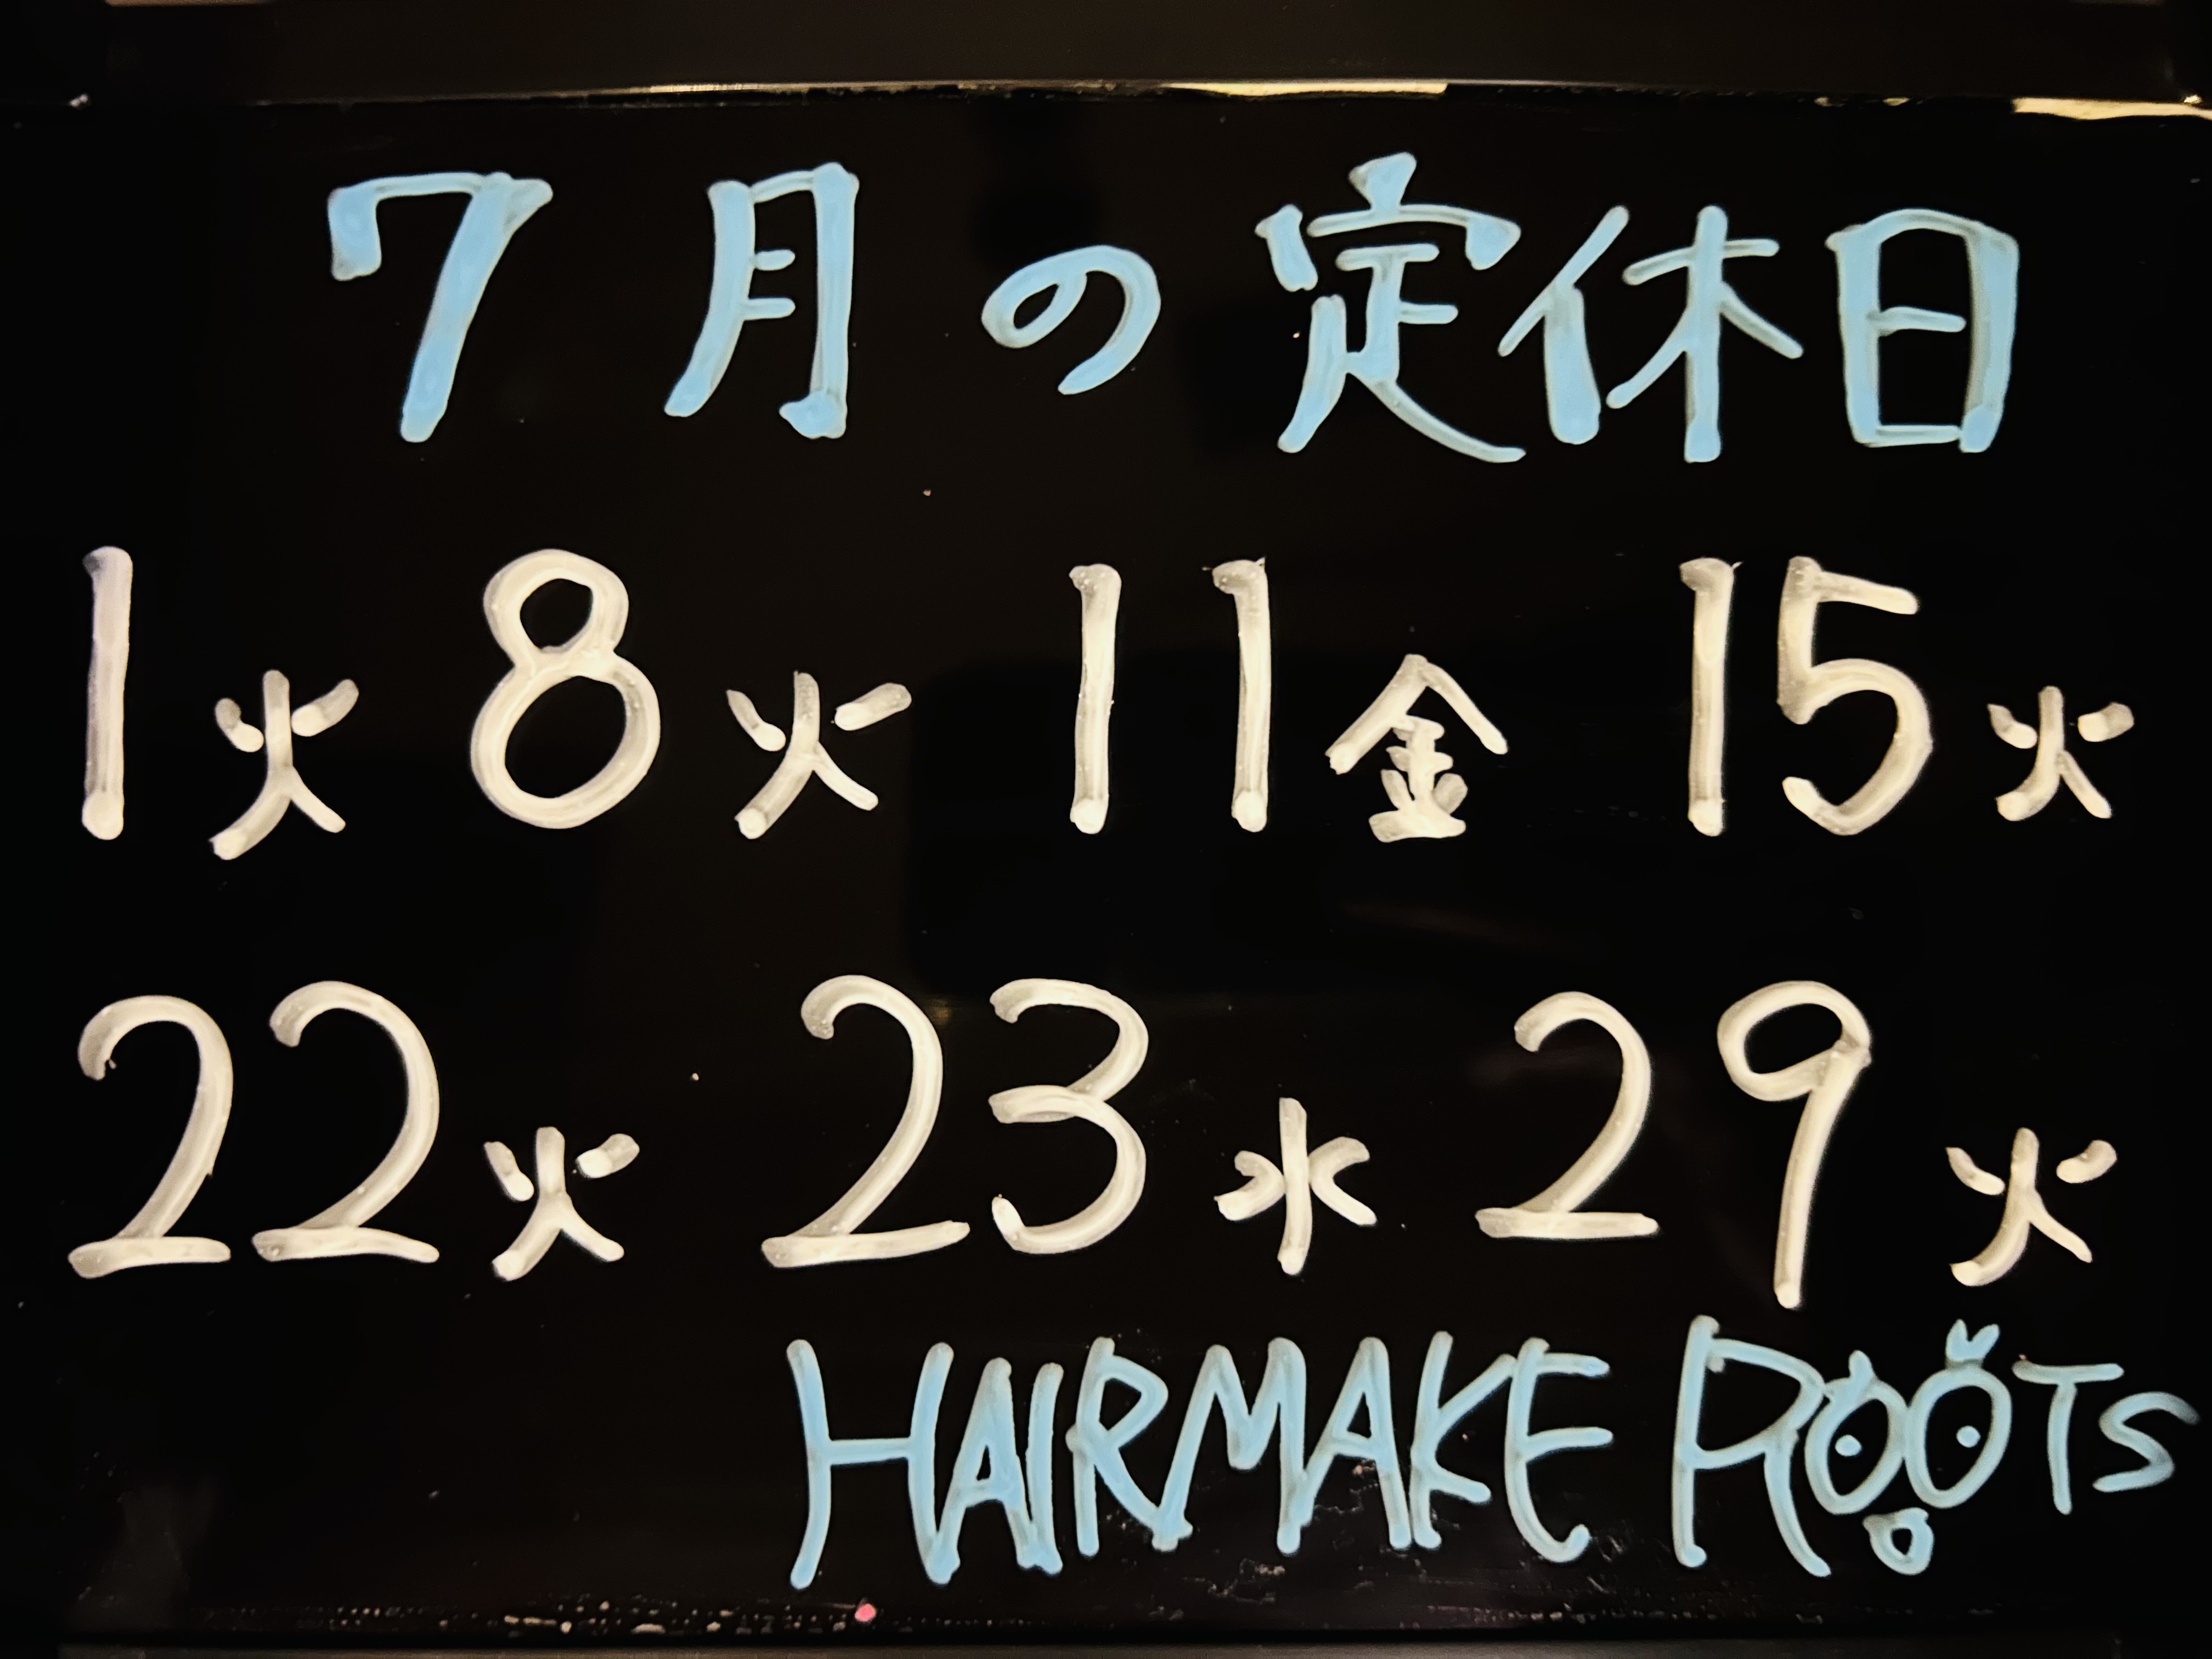 7月の定休日
1火 8火 11金 15火
22火 23水 29火
HAIRMAKE ROOTS